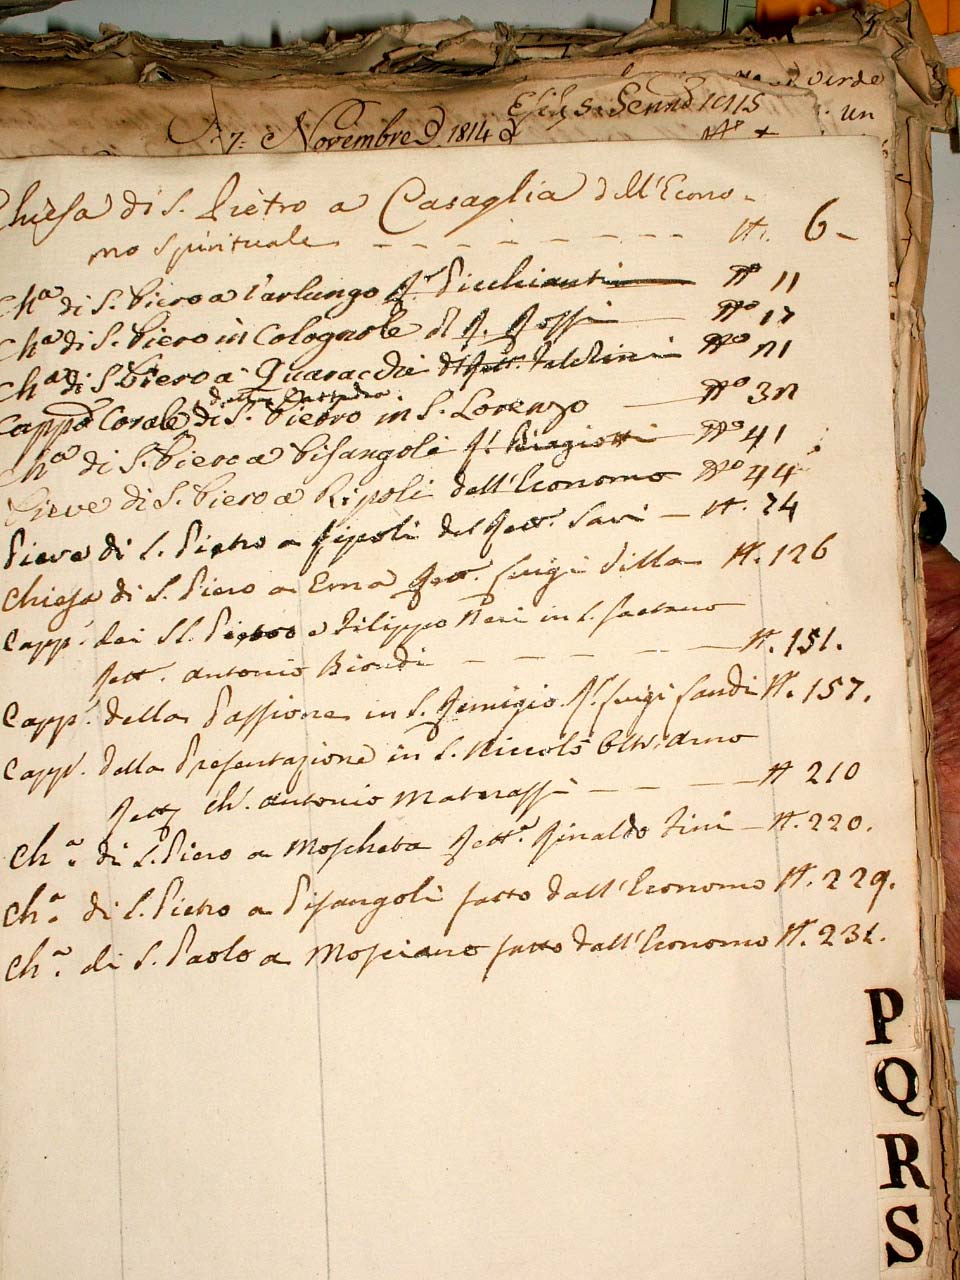 verde
Gennᵒ 1815
un
A 7: Novembre 1814
Chiesa di S. Pietro a Casaglia dell'Econo-
mo Spirituale - - - - - - - - N. 6-
Chᵃ di S. Piero a Varlungo Rʳ Picchianti N 11
Chᵃ di S. Piero in Colognole R. Rossi Nᵒ 17
Chᵃ di S. Piero a Quaracchi Nᵒ 21
Cappᵃ Corale di S. Pietro in S. Lorenzo Nᵒ 32
Chᵃ di S. Piero a Pisangoli R. Biagiotti Nᵒ 41
Pieve di S. Piero a Ripoli dell'Economo Nᵒ 44
Pieve di S. Pietro a Ripoli del Rett. Savi - N. 74
Chiesa di S. Piero a Ema Rett. Luigi Villa N. 126
Capp. dei SS. Pietro e Filippo Neri in S. Gaetano
Rett. Antonio Biondi - - - - - N. 151.
Capp. della Passione in S. Remigio Rʳ Luigi Sandi N. 157.
Capp. della Presentazione in S. Niccolò Oltr'Arno
Rett. Ch. Antonio Materassi - - - - N 210
Ch.ᵃ di S. Piero a Moscheta Rett. Rinaldo Tini - N. 220.
Ch.ᵃ di S. Pietro a Pisangoli fatto dall'Economo N. 229.
Ch.ᵃ di S. Paolo a Mosciano fatto dall'Economo N. 231.
P
Q
R
S